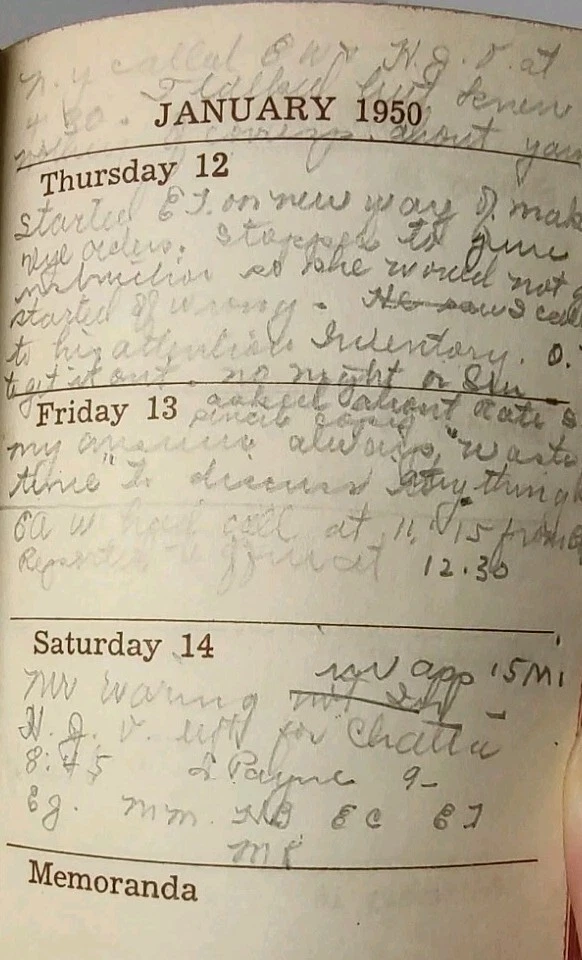 N.Y called E W + H. J. V. at
4.30. I talked but knew
about
JANUARY 1950
Thursday 12
Started E T. on new way of make
orders. Stopped to give
instruction so she would not g
started off wrong. He saw I call
to his attention Inventory. O.
to get it out. no night or Sun
Friday 13 asked about date
my answer always "waste
time" to discuss anything
had call at 11:15 from
12.30
Saturday 14
app 15 Mi
Mr Waring not In
H. J. V. left for Chatta
8:45 L Payne 9-
EJ. MM. NB EC ET
MR
Memoranda